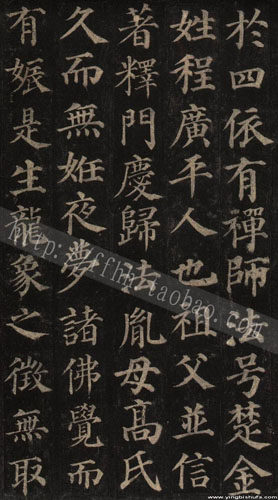 於四依有禪師法号楚金
姓程廣平人也祖父並信
著釋門慶歸法胤母髙氏
久而無姙夜夢諸佛覺而
有娠是生龍象之徵無取
www.yingbishufa.com